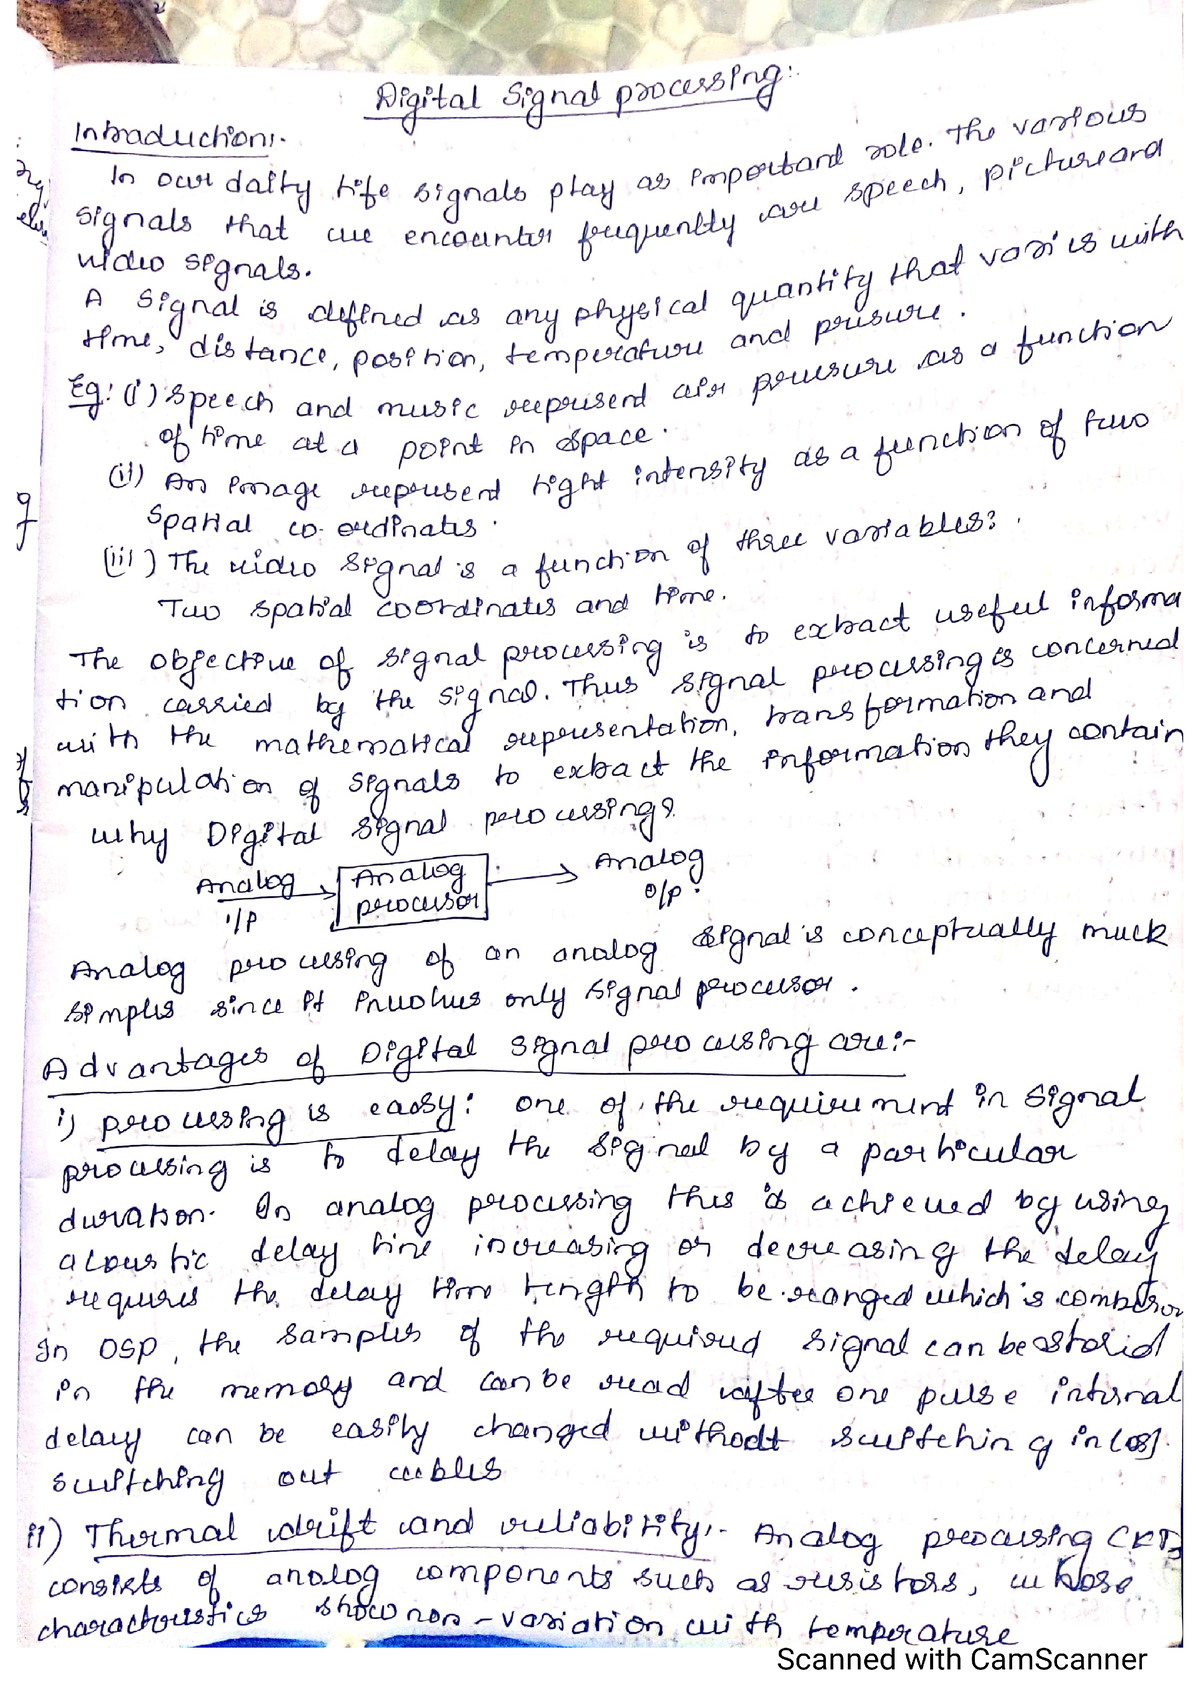 Digital Signal processing:
Introduction:-
In our daily life signals play as important role. The various
signals that we encounter frequently are speech, picture and
video signals.
A Signal is defined as any physical quantity that varies with
time, distance, position, temperature and pressure.
Eg: (i) Speech and music represent air pressure as a function
of time at a point in space.
(ii) An image represent light intensity as a function of two
Spatial co-ordinates.
(iii) The video signal is a function of three variables:
Two spatial coordinates and time.
The objective of signal processing is to extract useful informa
tion carried by the signal. Thus signal processing is concerned
with the mathematical representation, transformation and
manipulation of signals to extract the information they contain
why Digital signal processing?
Analog i/p
Analog processor
Analog o/p
Analog processing of an analog signal is conceptually much
simples since it involves only signal processor.
Advantages of Digital signal processing are:-
i) processing is easy: one of the requirement in signal
processing is to delay the signal by a particular
duration. In analog processing this is achieved by using
acoustic delay line increasing or decreasing the delay
requires the delay time length to be changed which is
In DSP, the samples of the required signal can be stored
in the memory and can be read after one pulse interval
delay can be easily changed without switching in (os)
switching out cables
ii) Thermal drift and reliability:- Analog processing CKTs
consists of analog components such as resistors, whose
characteristics show non-variation with temperature
Scanned with CamScanner